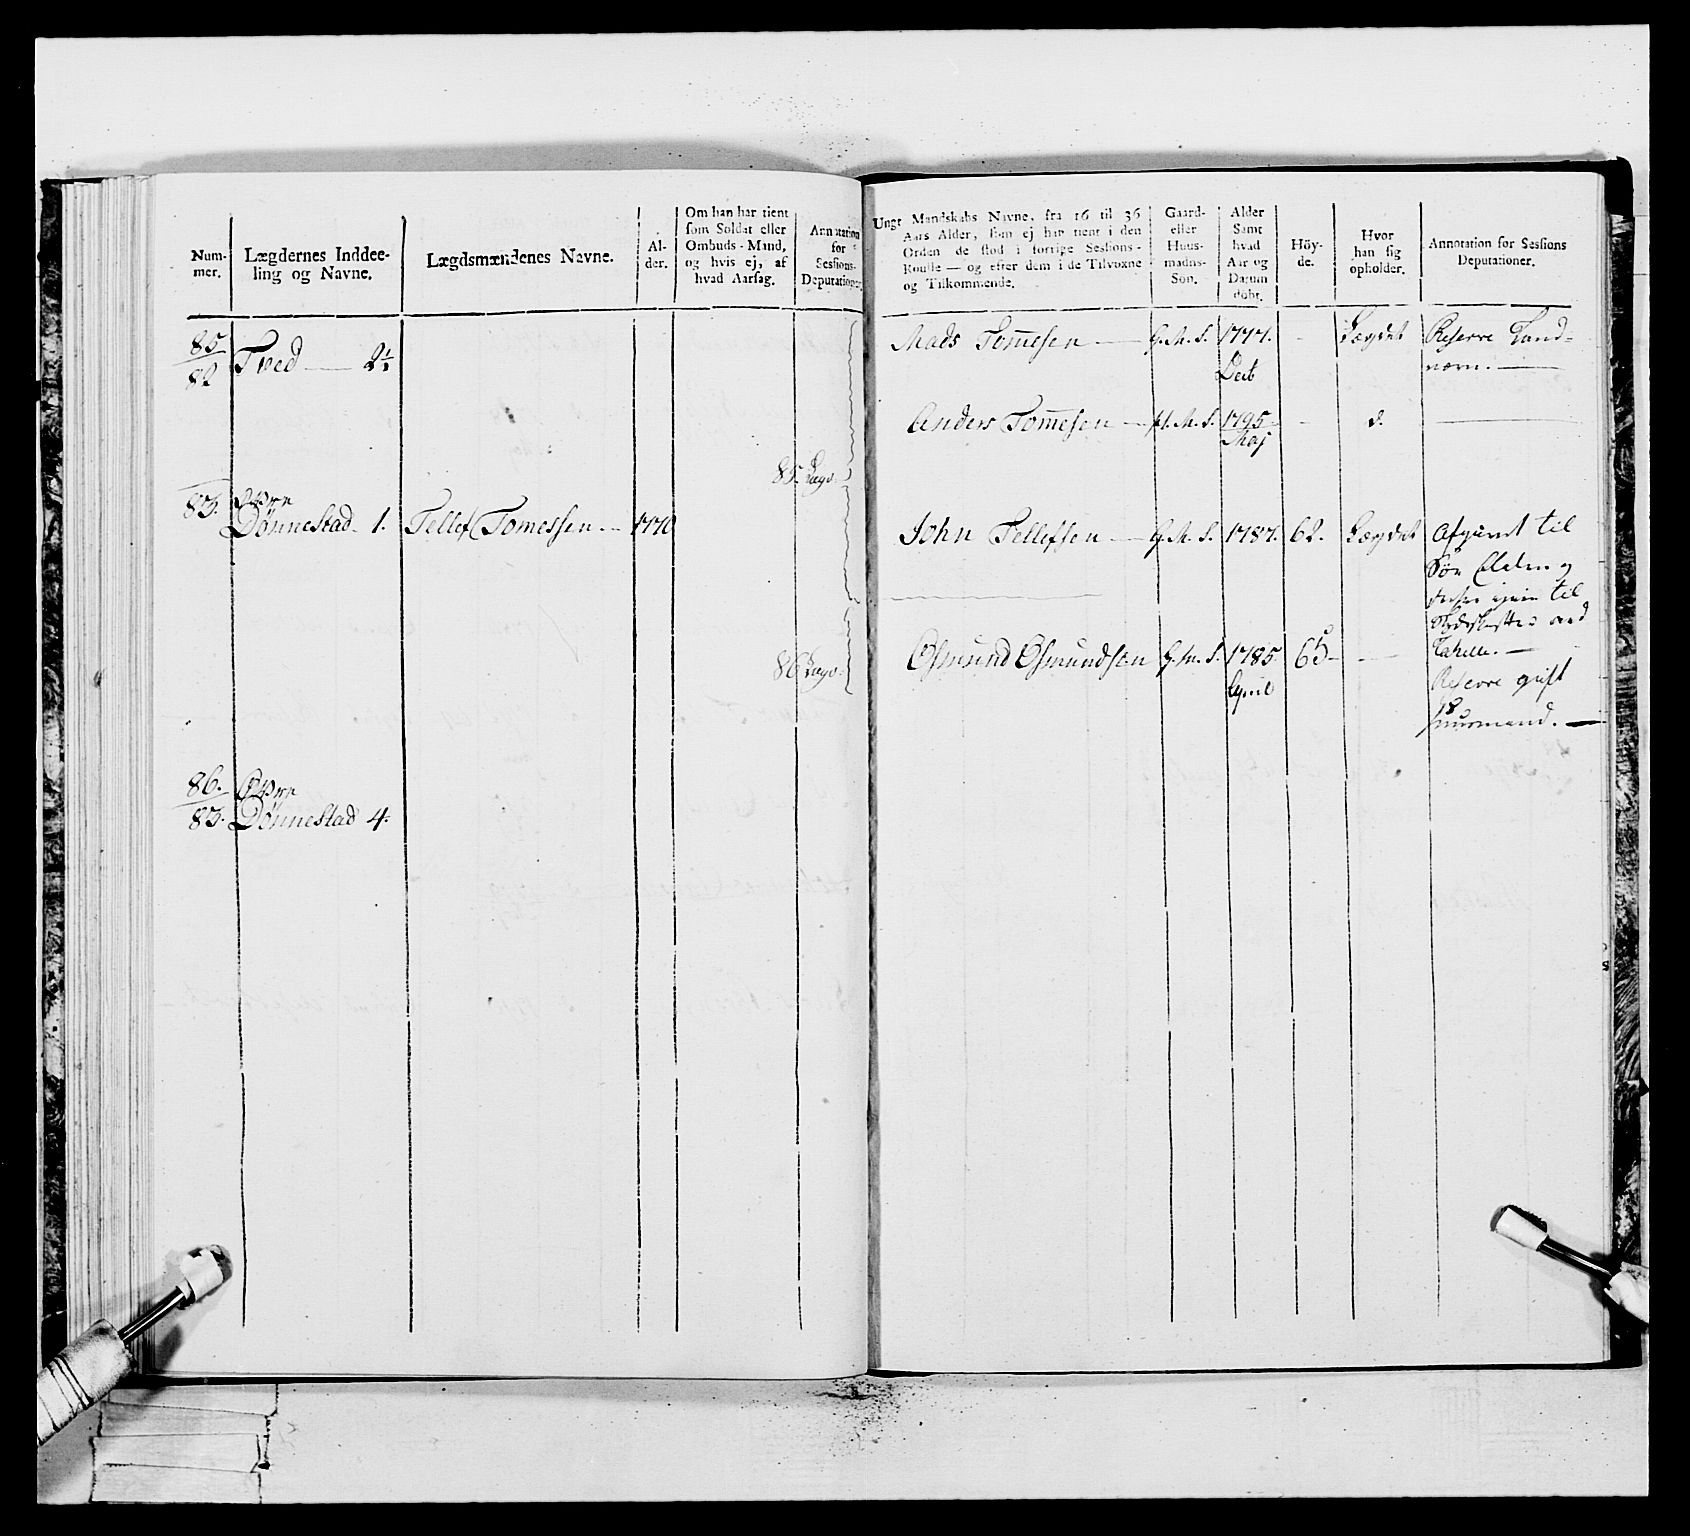 Num-
mer.
Lægdernes Inddee-
ling og Navne.
Lægdsmændenes Navne.
Al-
der.
Om han har tient
som Soldat eller
Ombuds-Mand,
og hvis ej, af
hvad Aarsag.
Annotation
for
Sessions-
Deputationer.
85
82
Tved 2½
85. Lægd.
83.
Øvre
Dönnestad 1.
Tellef Tomessen
1770
86 Lægd.
86.
83.
Øvre
Dönnestad 4.
Ungt Mandskabs Navne, fra 16 til 36
Aars Alder, som ej har tient i den
Orden de stod i forrige Sessions-
Roulle — og efter dem i de Tilvoxne
og Tilkommende.
Gaard-
eller
Huus-
mands-
Sön.
Alder
Samt
hvad
Aar og
Datum
döbt.
Höy-
de.
Hvor
han sig
opholder.
Annotation for Sessions
Deputationer.
Mads Tommesen G. M. S. 1777. Lægdet Reserve Land-
værn.
Anders Tommesen M. S. 1795 d.
Maj
John Tellefsen G. M. S. 1787. 62. Lægdet til
Sön og
til
ved
Osmund Osmundsen G. M. S. 1785 65
April
Reserve gift
huusmand.